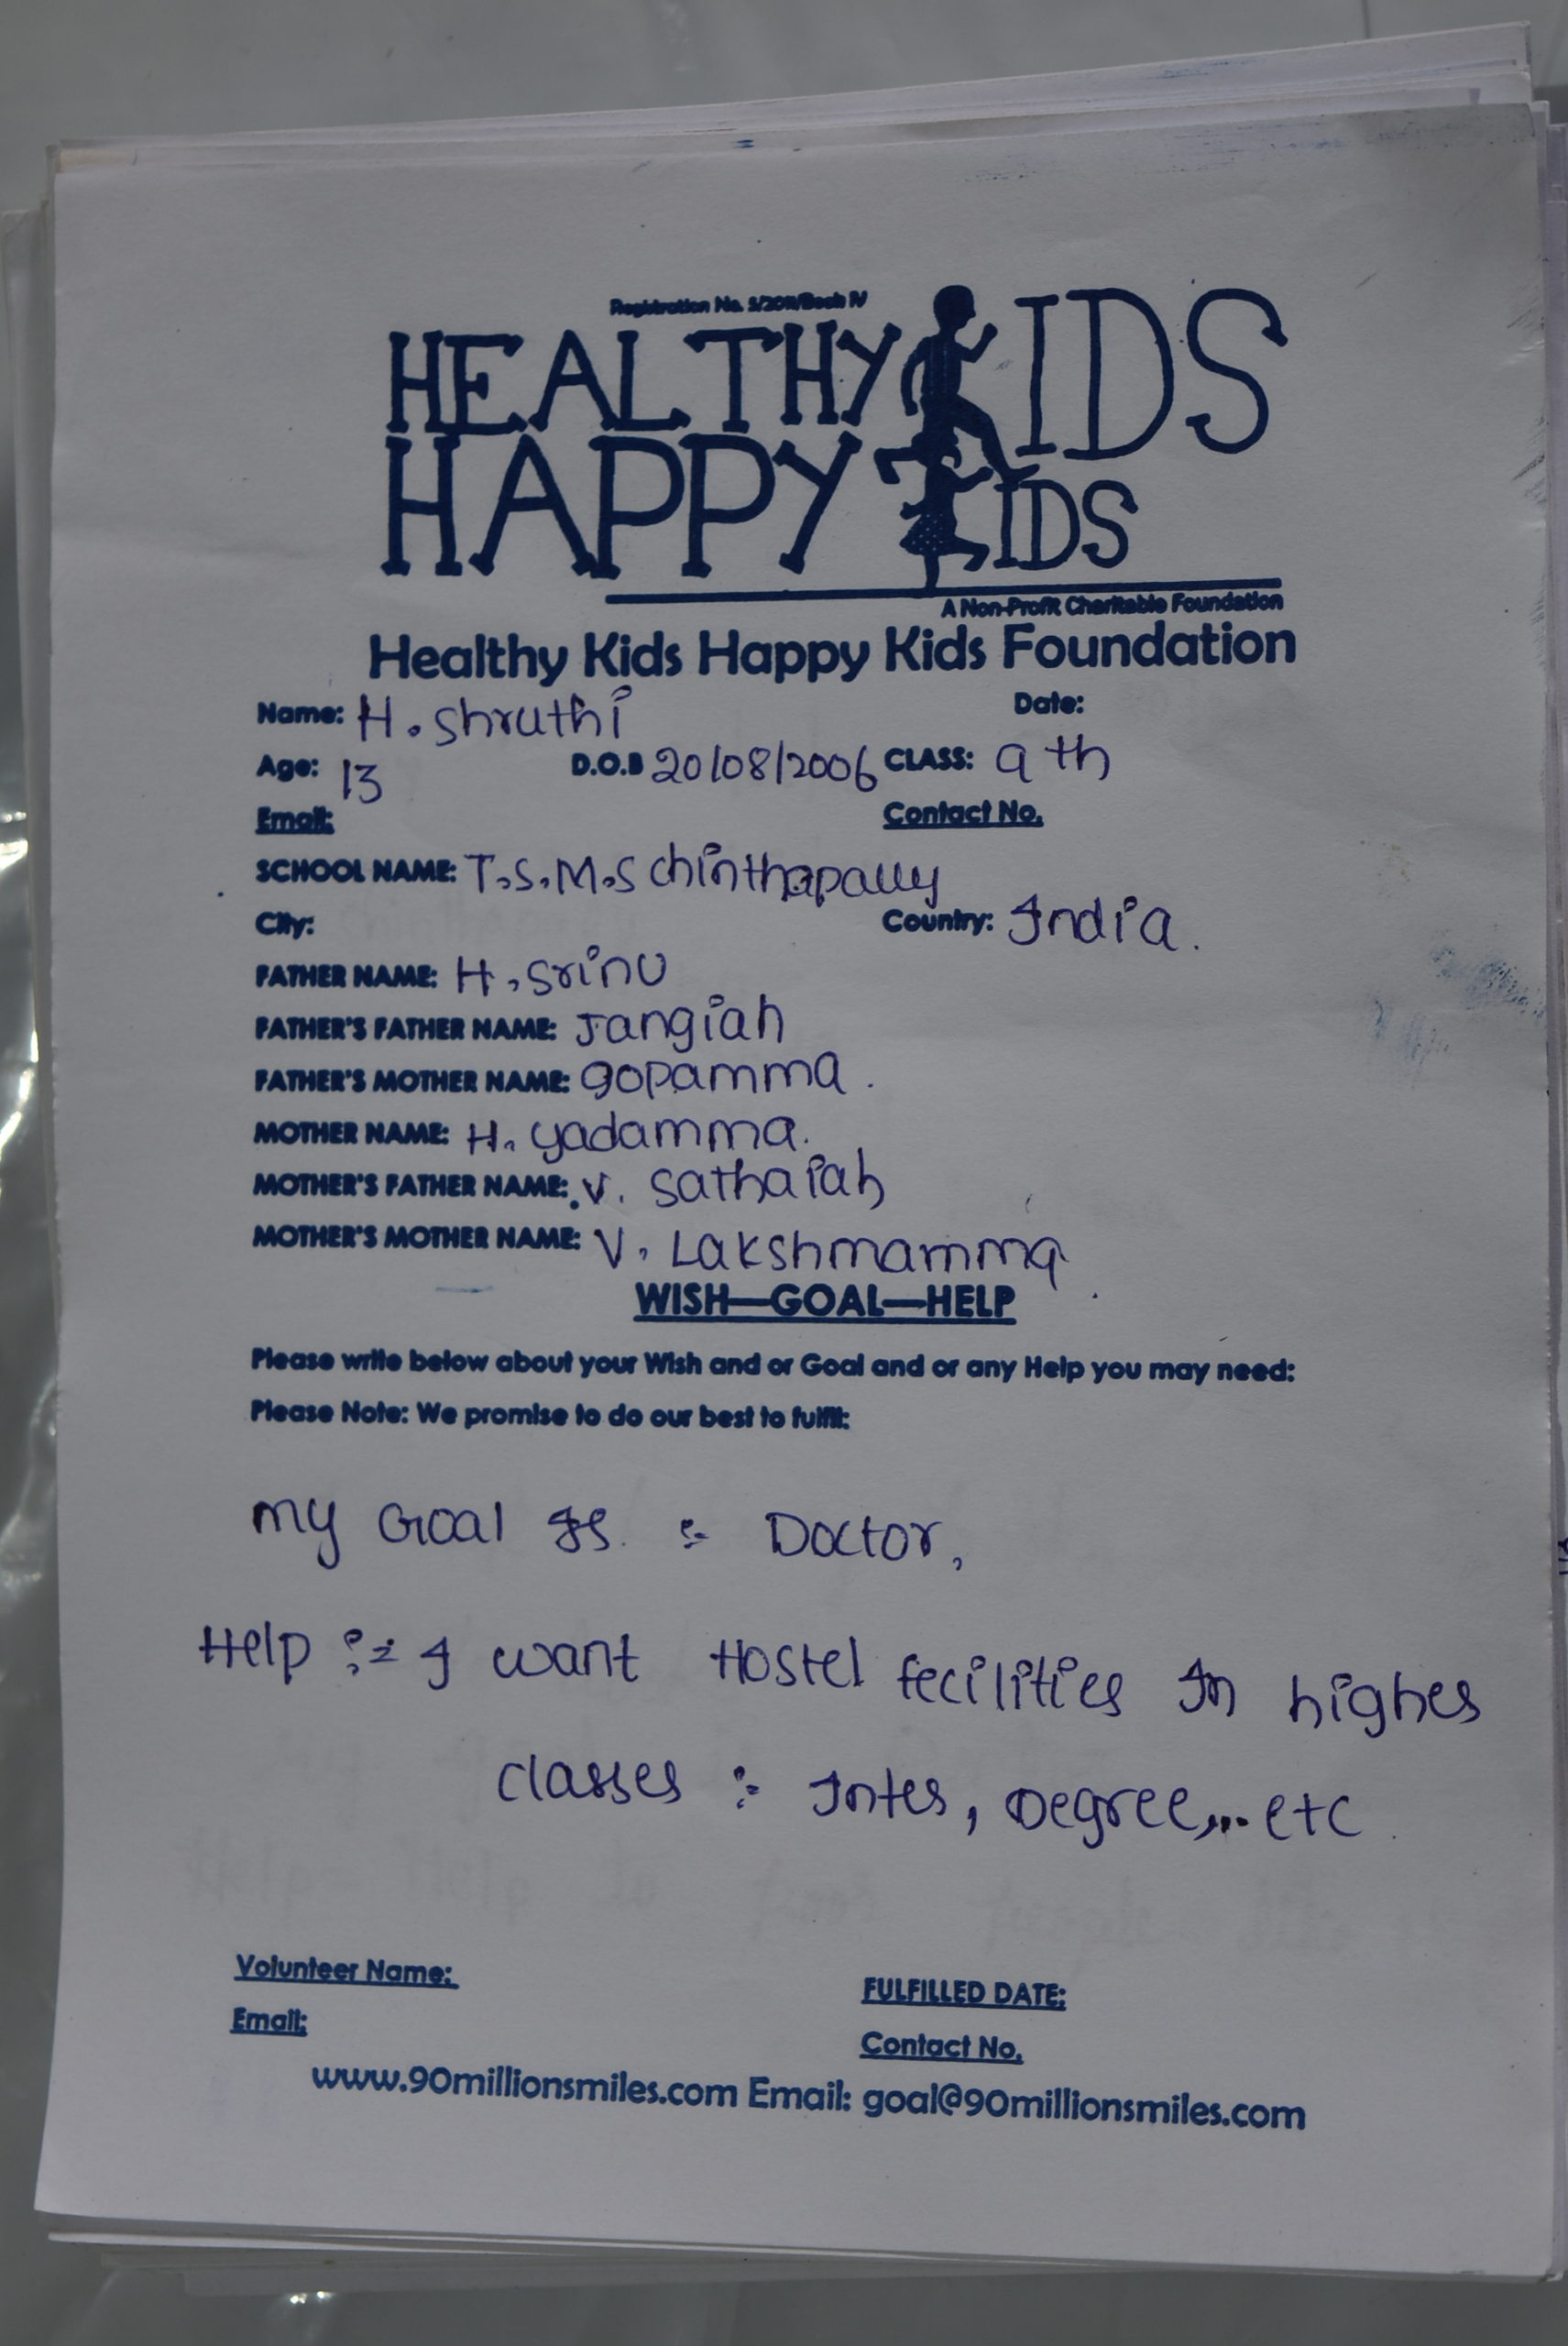 Registration No. 5/2011/Book IV
HEALTHY KIDS
HAPPY KIDS
A Non-Profit Charitable Foundation
Healthy Kids Happy Kids Foundation
Name: H. shruthi Date:
Age: 13 D.O.B 20/08/2006 CLASS: 9th
Email: Contact No.
SCHOOL NAME: T.S.M.S chinthapally
City: Country: India.
FATHER NAME: H. Srinu
FATHER'S FATHER NAME: Jangiah
FATHER'S MOTHER NAME: gopamma.
MOTHER NAME: H. yadamma.
MOTHER'S FATHER NAME: V. Sathaiah
MOTHER'S MOTHER NAME: V. Lakshmamma.
WISH—GOAL—HELP
Please write below about your Wish and or Goal and or any Help you may need:
Please Note: We promise to do our best to fulfill:
my Goal Is :- Doctor,
Help :- I want Hostel fecilities In higher
classes :- Inter, Degree,... etc.
Volunteer Name: FULFILLED DATE:
Email: Contact No.
www.90millionsmiles.com Email: goal@90millionsmiles.com